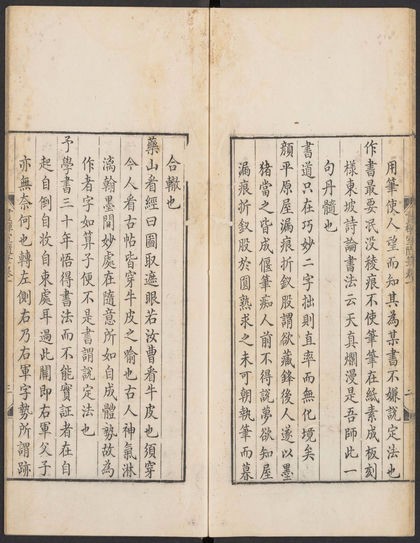 用筆使人望而知其為某書不嫌說定法也
作書最要泯没稜痕不使筆筆在紙素成板刻
樣東坡詩論書法云天真爛漫是吾師此一
句丹髓也
書道只在巧妙二字拙則直率而無化境矣
顏平原屋漏痕折釵股謂欲藏鋒後人遂以墨
猪當之皆成偃筆痴人前不得說夢欲知屋
漏痕折釵股於圓熟求之未可朝執筆而暮
合轍也
藥山看經曰圖取遮眼若汝曹看牛皮也須穿
今人看古帖皆穿牛皮之喻也古人神氣淋
漓翰墨間妙處在隨意所如自成體勢故為
作者字如算子便不是書謂說定法也
予學書三十年悟得書法而不能實証者在自
起自倒自收自束處耳過此關即右軍父子
亦無奈何也轉左側右乃右軍字勢所謂跡
三